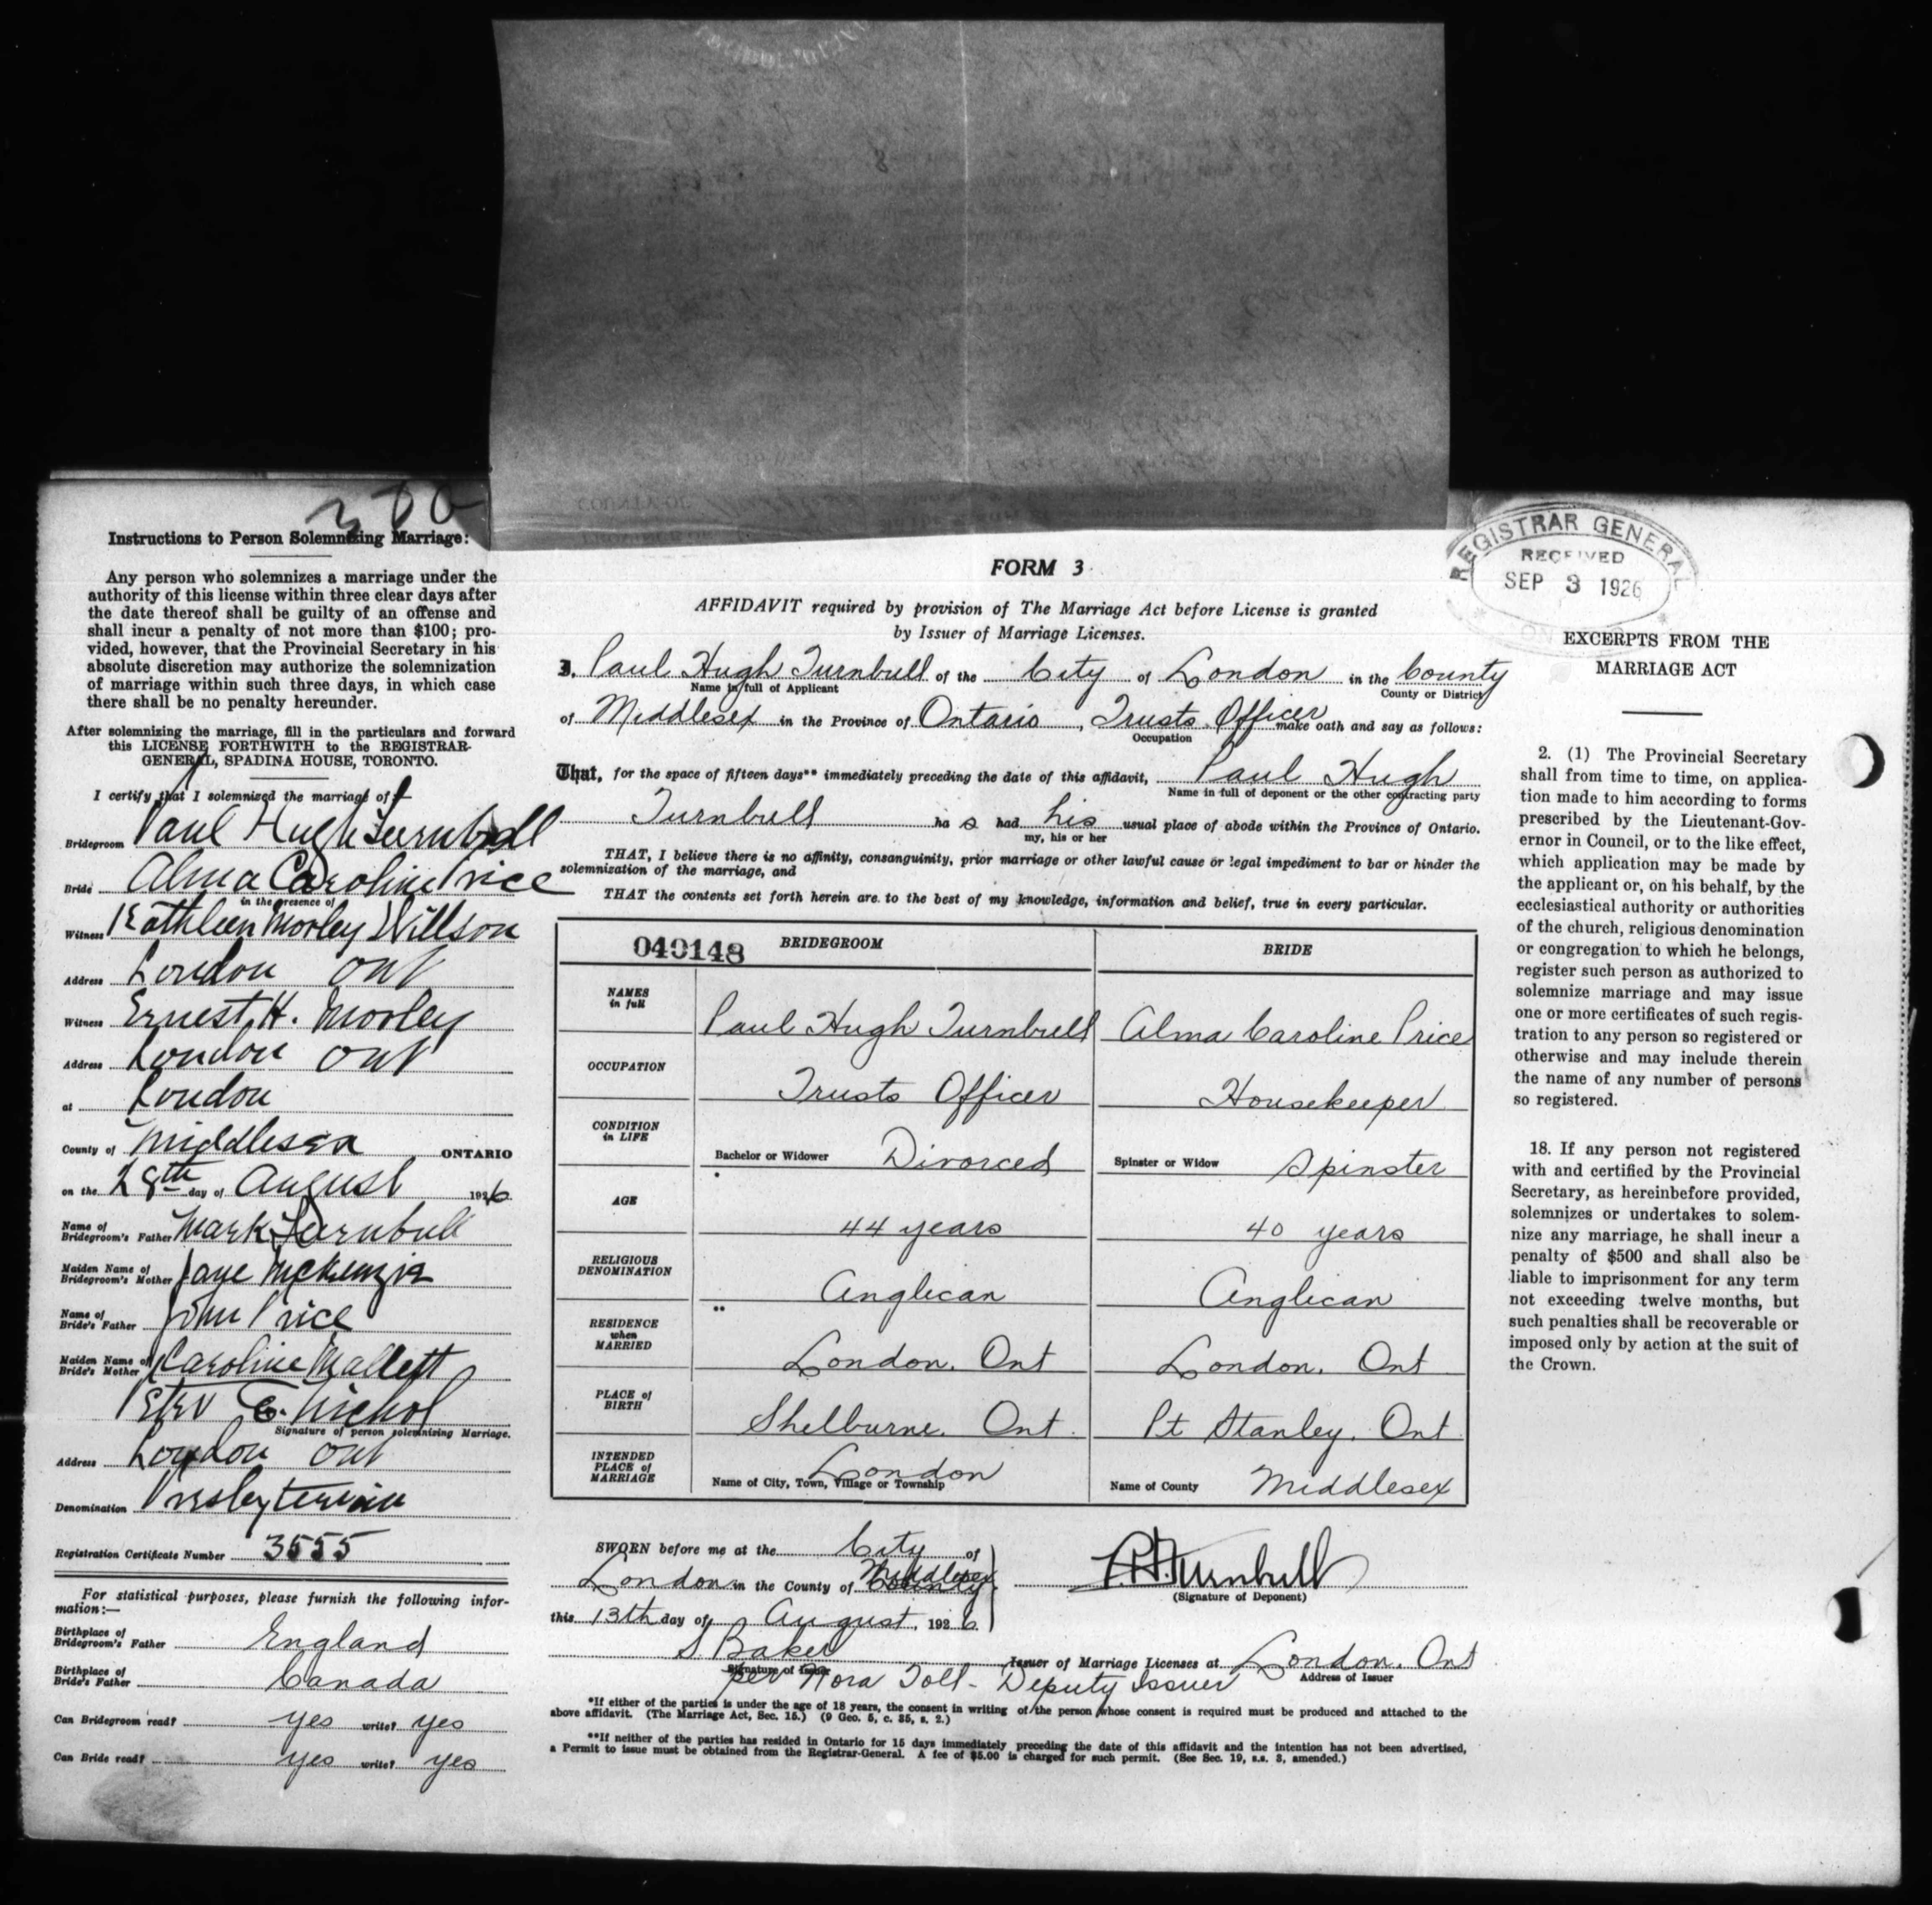 300
Instructions to Person Solemnizing Marriage:
Any person who solemnizes a marriage under the
authority of this license within three clear days after
the date thereof shall be guilty of an offense and
shall incur a penalty of not more than $100; pro-
vided, however, that the Provincial Secretary in his
absolute discretion may authorize the solemnization
of marriage within such three days, in which case
there shall be no penalty hereunder.
After solemnizing the marriage, fill in the particulars and forward
this LICENSE FORTHWITH to the REGISTRAR-
GENERAL, SPADINA HOUSE, TORONTO.
I certify that I solemnized the marriage of
Bridegroom Paul Hugh Turnbull
Bride Alma Caroline Price
in the presence of
Witness Kathleen Morley Willson
Address London Ont
Witness Ernest H. Morley
Address London Ont
at London
County of Middlesex ONTARIO
on the 28th day of August 1926
Name of
Bridegroom's Father Mark Turnbull
Maiden Name of
Bridegroom's Mother Jane McKenzie
Name of
Bride's Father John Price
Maiden Name of
Bride's Mother Caroline Mallett
Peter E. Nichol
Signature of person solemnizing Marriage.
Address London Ont
Denomination Presbyterian
Registration Certificate Number 3555
For statistical purposes, please furnish the following infor-
mation:—
Birthplace of
Bridegroom's Father England
Birthplace of
Bride's Father Canada
Can Bridegroom read? yes write? yes
Can Bride read? yes write? yes
FORM 3
AFFIDAVIT required by provision of The Marriage Act before License is granted
by Issuer of Marriage Licenses.
I, Paul Hugh Turnbull of the City of London in the County
Name in full of Applicant County or District
of Middlesex in the Province of Ontario, Trusts Officer make oath and say as follows:
Occupation
That, for the space of fifteen days** immediately preceding the date of this affidavit, Paul Hugh
Name in full of deponent or the other contracting party
Turnbull has had his usual place of abode within the Province of Ontario.
my, his or her
THAT, I believe there is no affinity, consanguinity, prior marriage or other lawful cause or legal impediment to bar or hinder the
solemnization of the marriage, and
THAT the contents set forth herein are to the best of my knowledge, information and belief, true in every particular.
040148 BRIDEGROOM BRIDE
NAMES
in full Paul Hugh Turnbull Alma Caroline Price
OCCUPATION Trusts Officer Housekeeper
CONDITION
in LIFE Bachelor or Widower Divorced Spinster or Widow Spinster
AGE 44 years 40 years
RELIGIOUS
DENOMINATION Anglican Anglican
RESIDENCE
when
MARRIED London, Ont London, Ont
PLACE of
BIRTH Shelburne, Ont. Pt Stanley, Ont
INTENDED
PLACE of
MARRIAGE London Middlesex
Name of City, Town, Village or Township Name of County
SWORN before me at the City of
London in the County of Middlesex
this 13th day of August, 1926
P.H. Turnbull
(Signature of Deponent)
S Baker Issuer of Marriage Licenses at London, Ont
Signature of Issuer Address of Issuer
per Nora Toll - Deputy Issuer
*If either of the parties is under the age of 18 years, the consent in writing of the person whose consent is required must be produced and attached to the
above affidavit. (The Marriage Act, Sec. 15.) (9 Geo. 5, c. 35, s. 2.)
**If neither of the parties has resided in Ontario for 15 days immediately preceding the date of this affidavit and the intention has not been advertised,
a Permit to issue must be obtained from the Registrar-General. A fee of $5.00 is charged for such permit. (See Sec. 19, s.s. 3, amended.)
REGISTRAR GENERAL
RECEIVED
SEP 3 1926
EXCERPTS FROM THE
MARRIAGE ACT
2. (1) The Provincial Secretary
shall from time to time, on applica-
tion made to him according to forms
prescribed by the Lieutenant-Gov-
ernor in Council, or to the like effect,
which application may be made by
the applicant or, on his behalf, by the
ecclesiastical authority or authorities
of the church, religious denomination
or congregation to which he belongs,
register such person as authorized to
solemnize marriage and may issue
one or more certificates of such regis-
tration to any person so registered or
otherwise and may include therein
the name of any number of persons
so registered.
18. If any person not registered
with and certified by the Provincial
Secretary, as hereinbefore provided,
solemnizes or undertakes to solem-
nize any marriage, he shall incur a
penalty of $500 and shall also be
liable to imprisonment for any term
not exceeding twelve months, but
such penalties shall be recoverable or
imposed only by action at the suit of
the Crown.